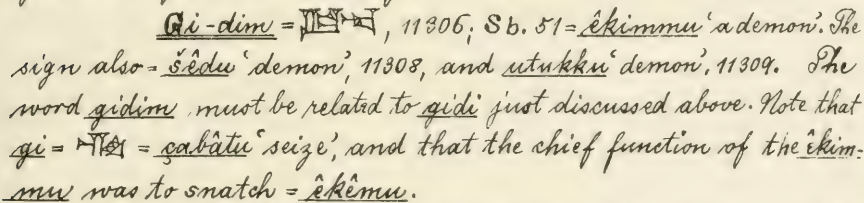 Gi-dim = , 11306; Sb. 51 = êkimmu ‘a demon’. The
sign also = šêdu ‘demon’, 11308, and utukku ‘demon’, 11309. The
word gidim must be related to gidi just discussed above. Note that
gi = = çabâtu ‘seize’, and that the chief function of the êkim-
mu was to snatch = êkêmu.